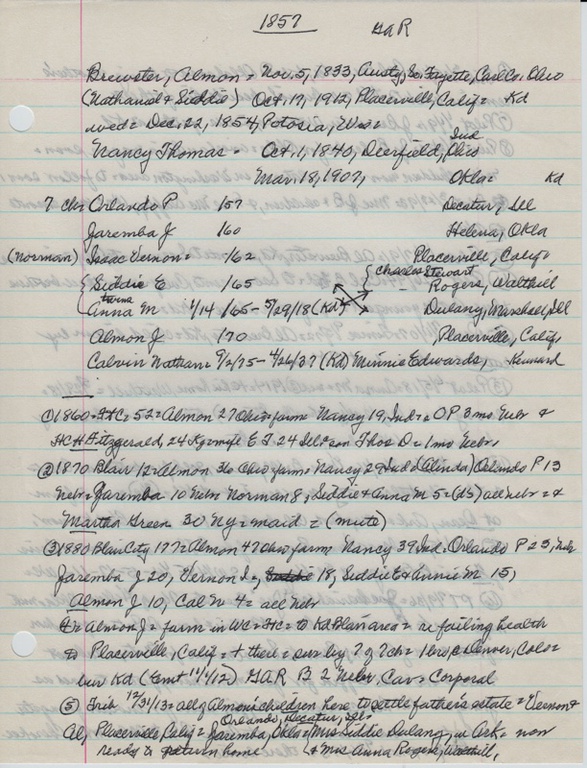 1857
GAR
Brewster, Almon = Nov. 5, 1833, So. Fayette, Co. Ohio
(Nathaniel & Siddie) Oct. 17, 1912, Placerville, Calif = Kd
wed = Dec. 22, 1854, Potosia, Wis =
Nancy Thomas = Oct. 1, 1840, Deerfield, Ohio
Ind
Mar. 18, 1907, Okla = Kd
7 chs Orlando P 157 Decatur, Ill
Jaremba J 160 Helena, Okla
(Norman) Isaac Vernon = 162 Placerville, Calif
{ Siddie E 165 { Charles Stewart Rogers, Walthill
twins
Anna M 1/14/65 - 5/29/18 (Kd) Dulang, Marshall, Ill
Almon J 170 Placerville, Calif,
Calvin Nathan = 9/2/75 - 4/26/37 (Kd) Minnie Edwards, Kennard
① 1860 = = 52 = Almon 27 Ohio = farm = Nancy 19, Ind = O P 3 mo Nebr &
H Fitzgerald, 24 Ky = wife E F 24 Ill = son Thos D = 1 mo Nebr,
② 1870 Blair 12 = Almon 36 Ohio farm = Nancy 29 Ind (Almda) Orlando P 13
Nebr = Jaremba 10 Nebr Norman 8, Siddie & Anna M 5 = (ds) all Nebr = &
Martha Green 30 Ny = maid = (mute)
③ 1880 Blair City 177 = Almon 47 Ohio farm Nancy 39 Ind. Orlando P 23, Neb
Jaremba J 20, Vernon I = 18, Siddie E & Annie M 15,
Almon J 10, Cal N 4 = all Nebr
④ = Almon J = farm in WC = = to Kd Blair area = re failing health
to Placerville, Calif = & there = sur by 7 of 7 ch = 1 bro, Denver, Colo =
bur Kd (Ent 11/1/12) GAR B 2 Nebr, Cav = Corporal
⑤ Trib 12/31/13 = all of Almon's children here to settle father's estate = Vernon &
Al, Placerville, Calif = Orlando, Decatur, Ill = Jaremba, Okla = Mrs Siddie Dulang, in Ark = now
ready to return home & Mrs Anna Rogers, Walthill,